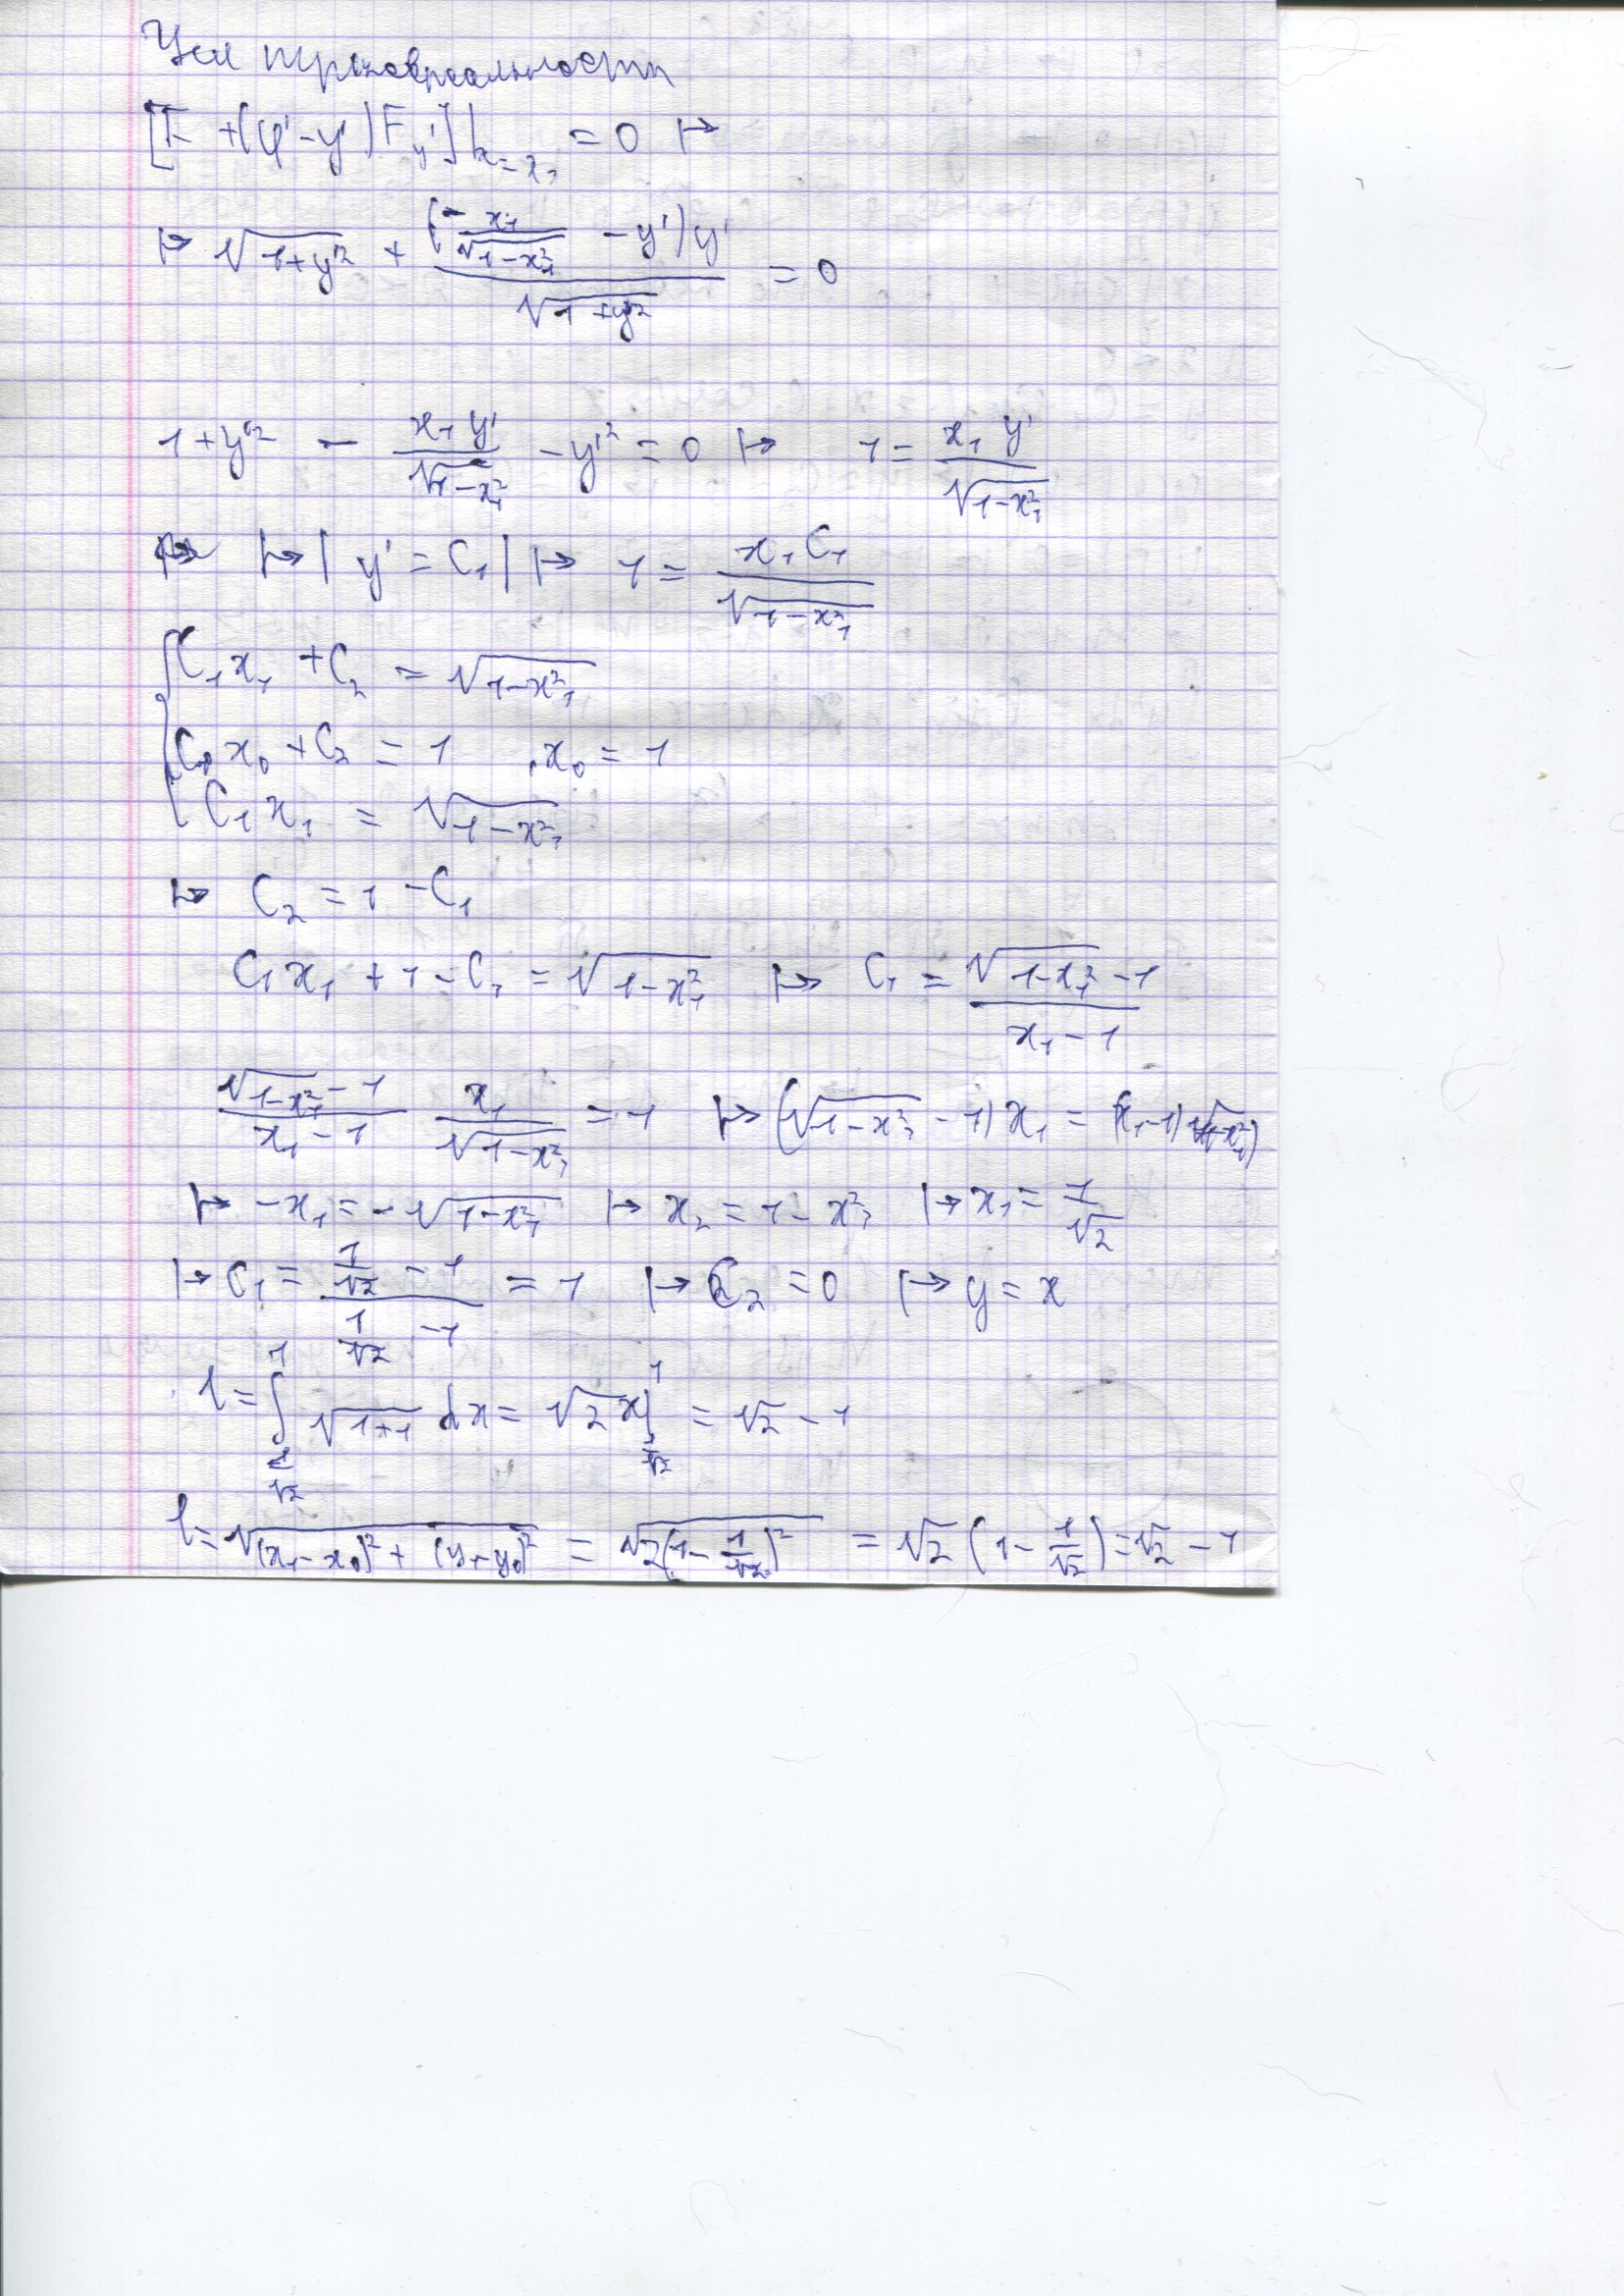 Усл трансверсальности
[F + (φ' - y')F_y']|_{x=x₁} = 0 ↦
↦ √(1+y'²) + ((-x₁/√(1-x₁²) - y')y')/√(1+y'²) = 0
1+y'² - x₁y'/√(1-x₁²) - y'² = 0 ↦ 1 = x₁y'/√(1-x₁²)
↦ | y' = C₁ | ↦ 1 = x₁C₁/√(1-x₁²)
{ C₁x₁ + C₂ = √(1-x₁²)
C₁x₀ + C₂ = 1 , x₀ = 1
C₁x₁ = √(1-x₁²)
↦ C₂ = 1 - C₁
C₁x₁ + 1 - C₁ = √(1-x₁²) ↦ C₁ = (√(1-x₁²) - 1)/(x₁ - 1)
(√(1-x₁²) - 1)/(x₁ - 1) x₁/√(1-x₁²) = 1 ↦ (√(1-x₁²) - 1)x₁ = (x₁-1)√(1-x₁²)
↦ -x₁ = -√(1-x₁²) ↦ x₂ = 1 - x₁² ↦ x₁ = 1/√2
↦ C₁ = (1/√2 - 1)/(1/√2 - 1) = 1 ↦ C₂ = 0 ↦ y = x
l = ∫_{1/√2}^{1} √(1+1) dx = √2 x|_{1/√2}^{1} = √2 - 1
l = √((x₁-x₀)² + (y₁-y₀)²) = √(2(1-1/√2)²) = √2 (1 - 1/√2) = √2 - 1